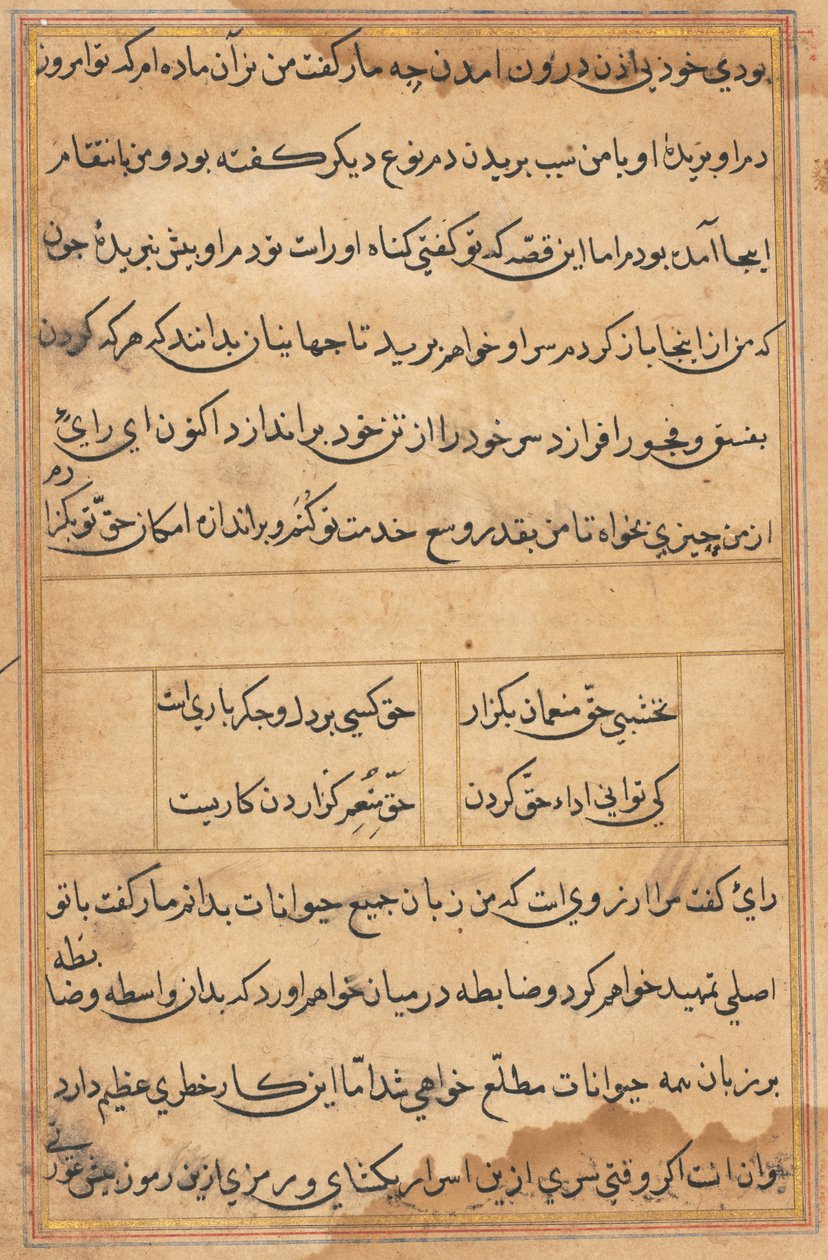 بودي خود بي اذن درون امدن چه مار كفت من نر آن ماده ام كه تو امروز
دم او بريدۀ او با من سبب بريدن دم نوع ديكر كفته بود و من بانتقام
اينجا آمده بودم اما اين قصّه كه تو كفتي كناه او راست تو دم او بيش نبريدۀ چون
كه من از اينجا باز كردم سر او خواهم بريد تا جهانيان بدانند كه هر كه كردن
بفسق و فجور افرازد سر خود را از تن خود براندازد اكنون اي راي
از من چيزي بخواه تا من بقدر وسع خدمت تو كُنَم و بر اندازه امكان حقّ تو بكزارم
نخشبي حقّ منعمان بكزار حق كسي بر دل و جكر باري است
كي تواني اداء حقّ كردن حَقِّ مُنْعِم كزاردن كاريست
راي كفت مرا ارزوي است كه من زبان جميع حيوانات بدانم مار كفت با تو
اصلي تمهيد خواهم كرد و ضابطه درميان خواهم اورد كه بدان واسطه و ضابطه
بر زبان همه حيوانات مطلّع خواهي شد امّا اين كار خطري عظيم دارد
وان انست اكر وقتي سري ازين اسرار بكشاي و رمزي ازين رموز پيش عورتي